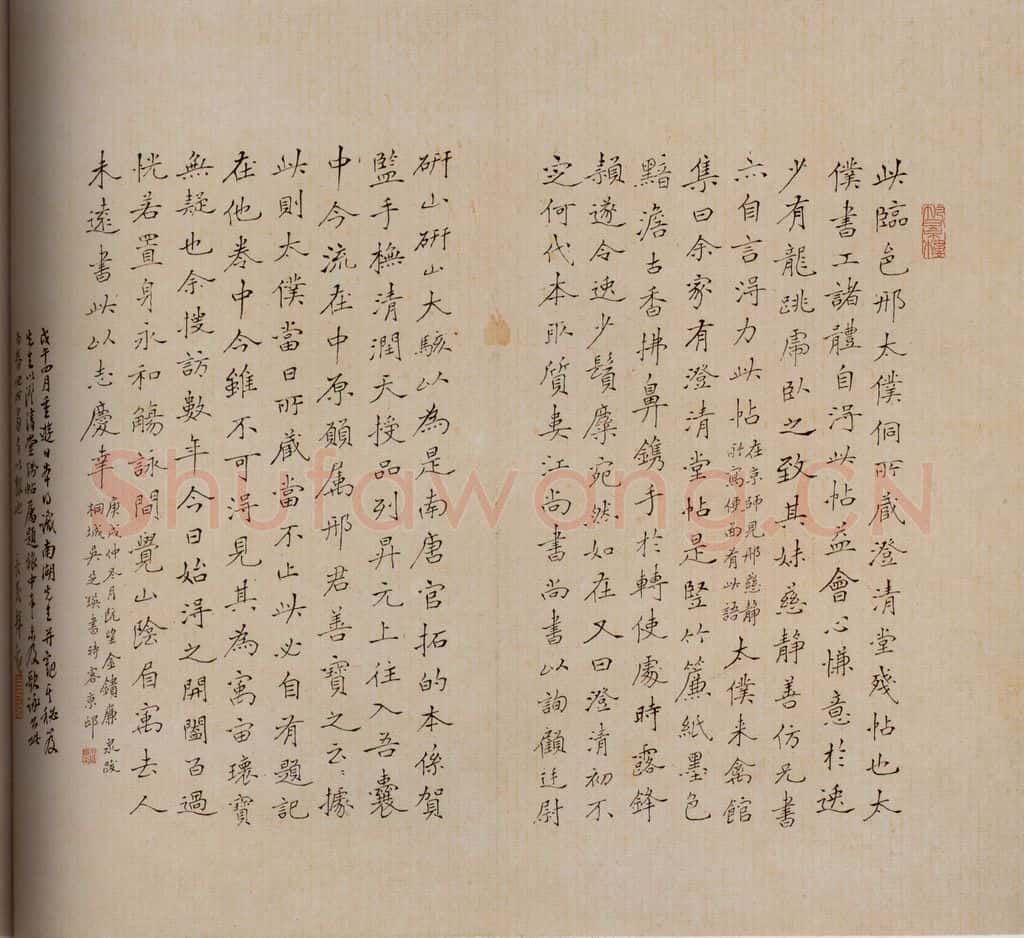 此臨邑邢太僕侗所藏澄清堂殘帖也太
僕書工諸體自淂此帖益會心慊意於逸
少有龍跳虎臥之致其妹慈静善仿兄書
亦自言淂力此帖在京師見邢慈静所寫便面有此語太僕来禽館
集曰余家有澄清堂帖是竪竹簾紙墨色
黯澹古香拂鼻鐫手於轉使處時露鋒
頴遂令逸少鬚麋宛然如在又曰澄清初不
定何代本所質婁江尚書尚書以詢顧廷尉
研山研山大駭以為是南唐官拓的本係賀
監手橅清潤天授品列昇元上往入吾囊
中今流在中原願属邢君善寶之云〻據
此則太僕當日所藏當不止此必自有題記
在他卷中今雖不可淂見其為寓宙瓌寶
無疑也余搜訪數年今日始淂之開闔百過
恍若置身永和觴詠間覺山陰眉寓去人
未遠書此以志慶幸
庚戌仲冬月既望金鐀廉泉跋
桐城吳芝瑛書時客京邸
戊午四月重遊日本
南湖先生
先生以澄清堂殘帖属題旅中
Shufawang.CN